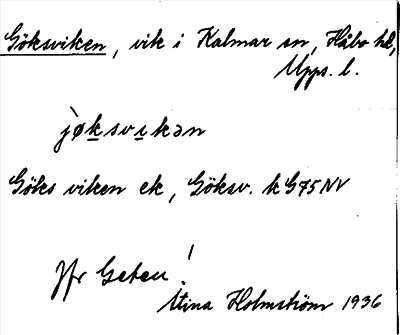 Göksviken, vik i Kalmar sn, Håbo hd,
Upps. l.
jø̀ksvıkən
Göks viken ek, Göksv. k G75NV
Jfr Geten!
Stina Holmström 1936